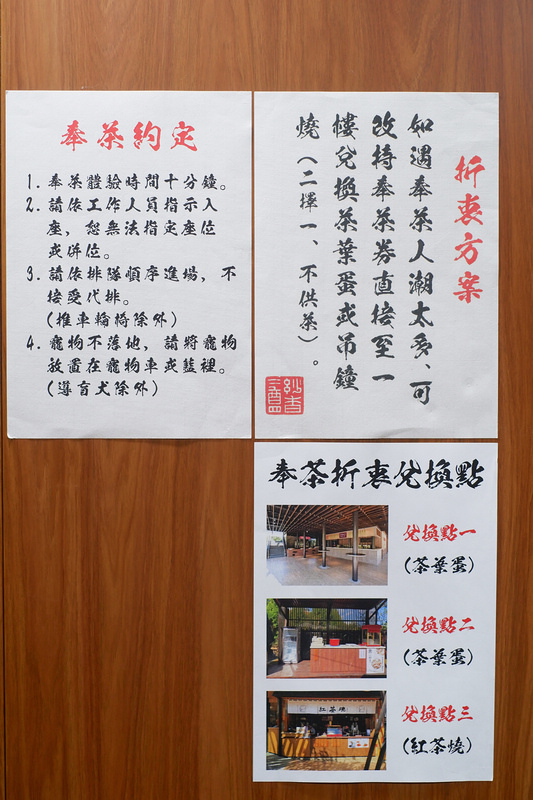 奉茶約定
1. 奉茶體驗時間十分鐘。
2. 請依工作人員指示入
座，您無法指定座位
或併位。
3. 請依排隊順序進場，不
接受代排。
(推車輪椅除外)
4. 寵物不落地，請將寵物
放置在寵物車或籃裡。
(導盲犬除外)
折衷方案
如遇奉茶人潮太多、可
改持奉茶券直接至一
樓兌換茶葉蛋或吊鐘
燒（二擇一、不供茶）。
奉茶折衷兌換點
兌換點一
(茶葉蛋)
兌換點二
(茶葉蛋)
紅茶燒
兌換點三
(紅茶燒)